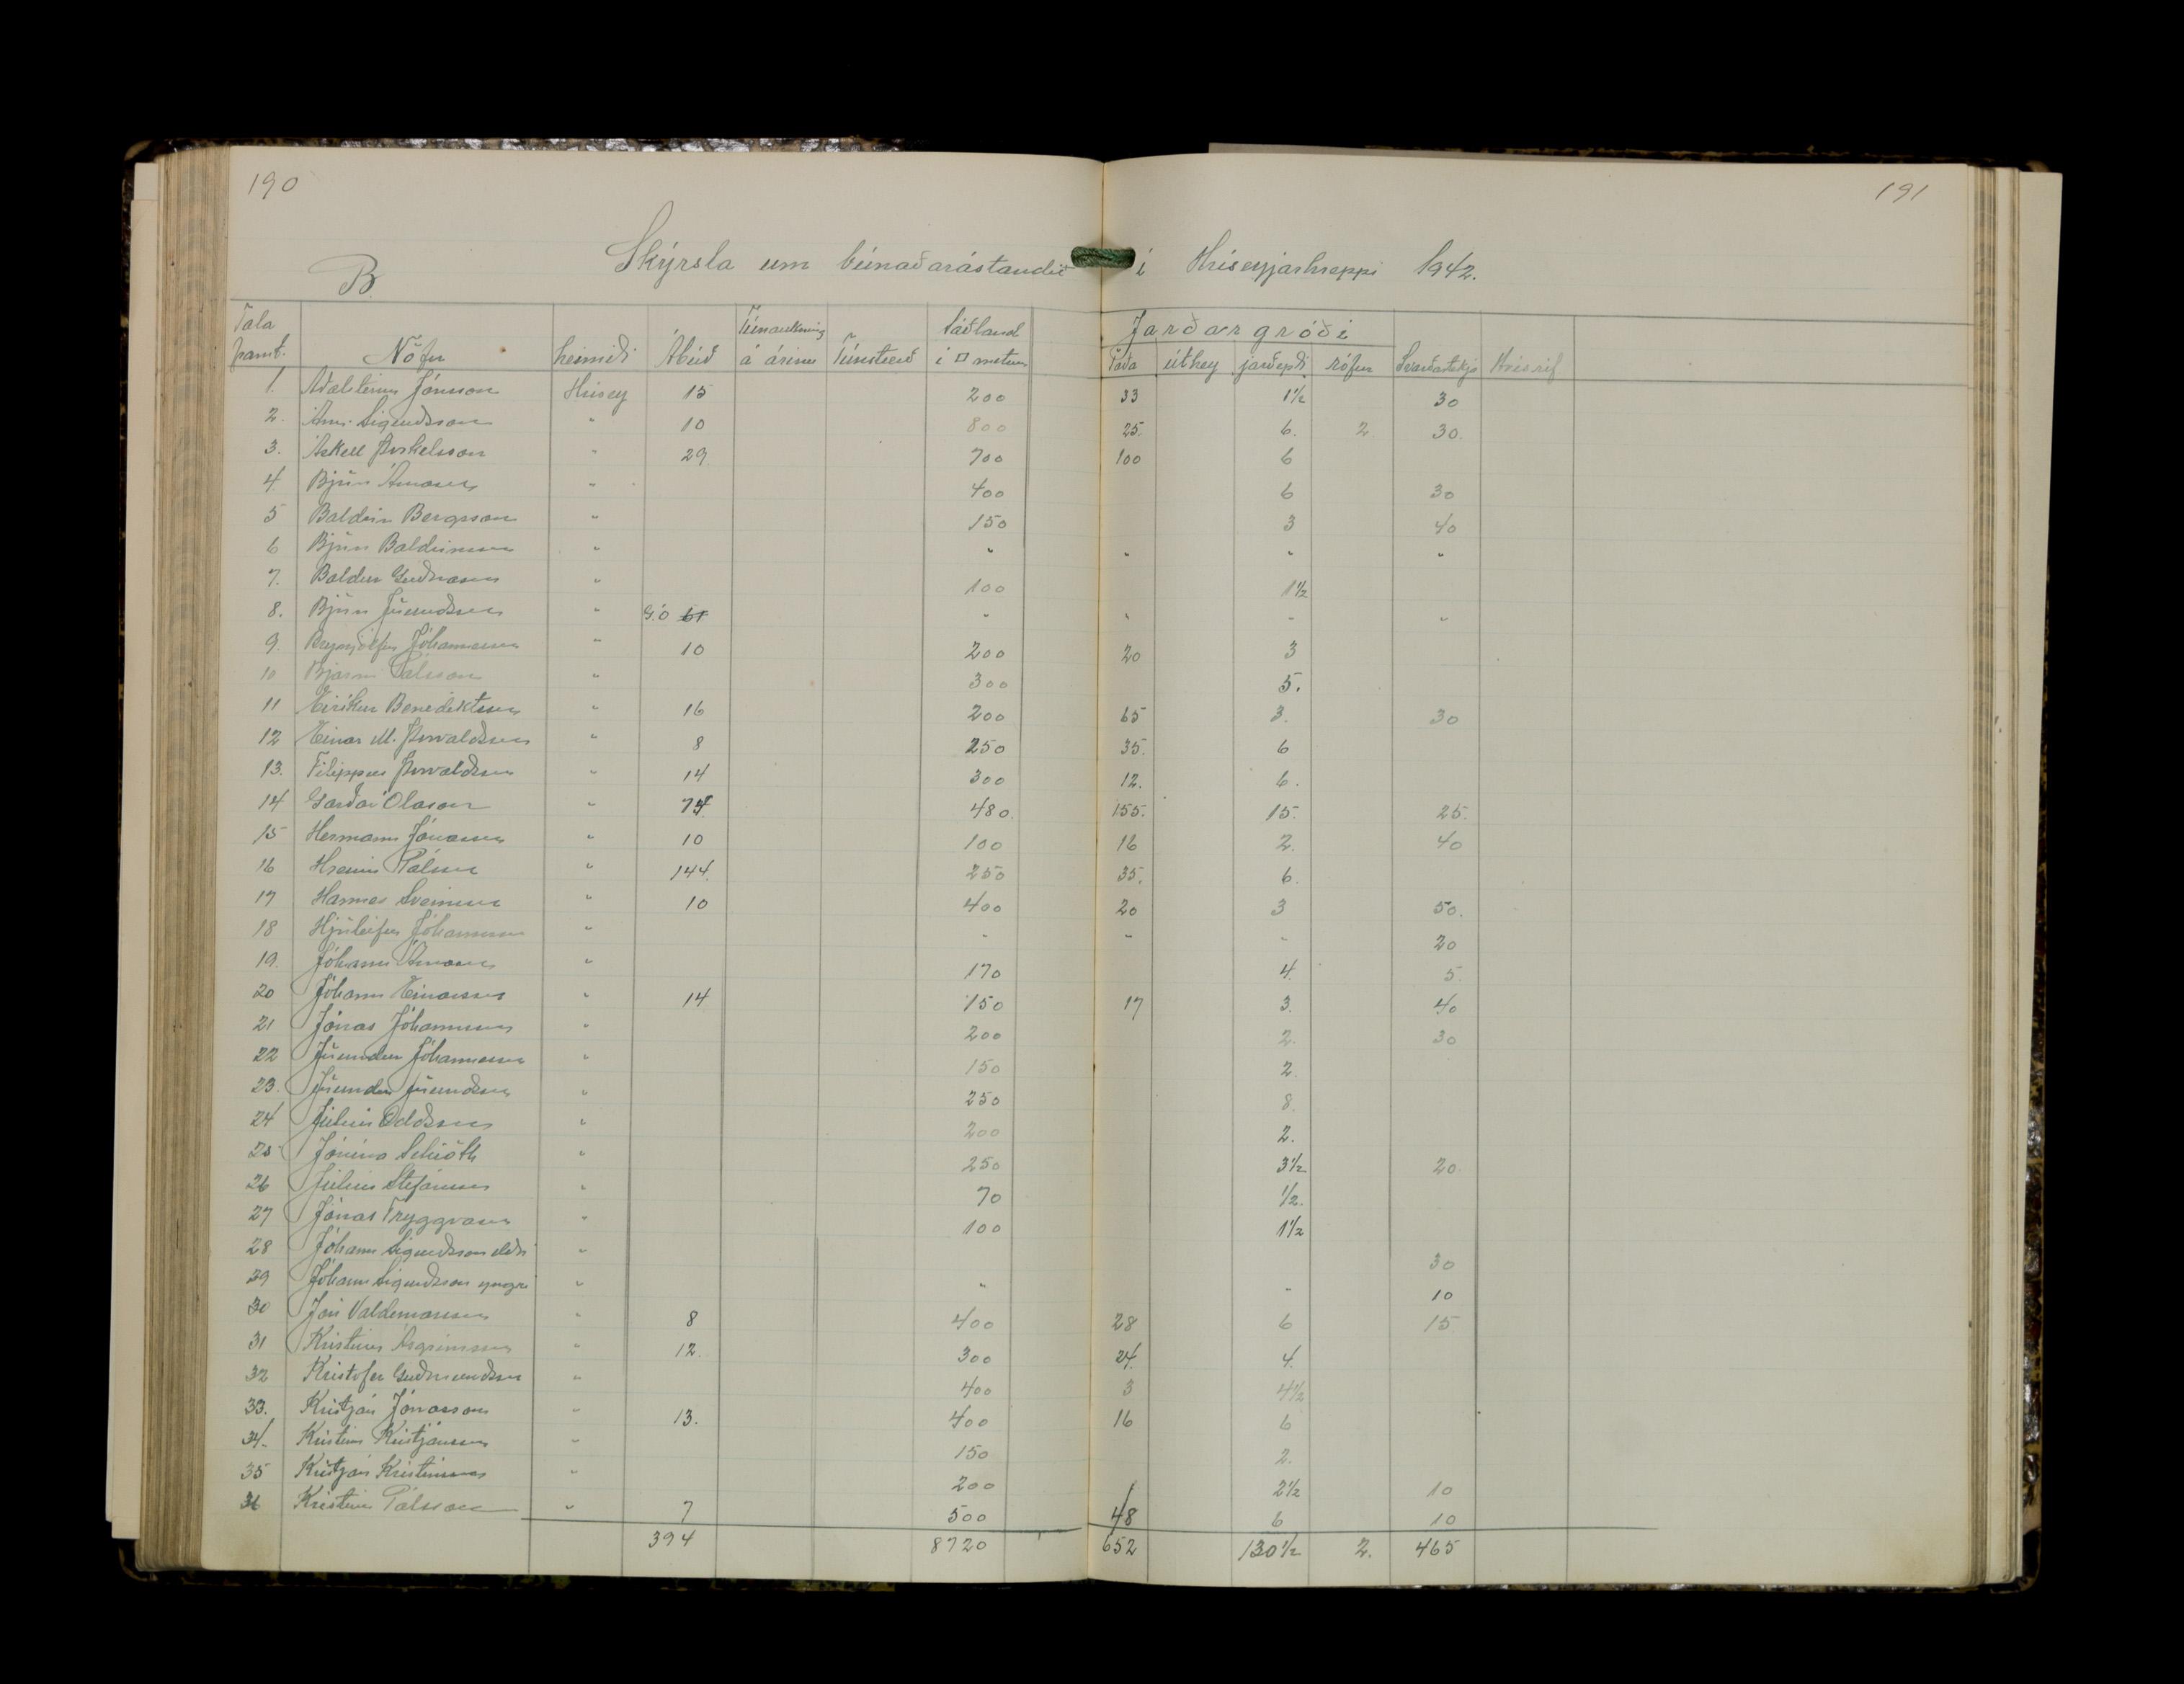 190
191
B
Skýrsla um búnaðarástandið í Hríseyjarhreppi 1942.
Tala framt. Nöfn heimili Ábúð Túnaukning á árinu Túnstærð Sáðland í □ metrum Jarðargróði
Taða úthey jarðepli rófur Svarðartekja Hrísrif
1. Aðalsteinn Jónsson Hrísey 15 200 33 1½ 30
2. Árni Sigurðsson " 10 800 25. 6. 2. 30.
3. Áskell Þorkelsson " 29 700 100 6
4. Björn Árnason " 400 6 30
5 Baldvin Bergsson " 150 3 40
6 Björn Baldvinsson " " " " "
7. Baldur Guðnason " 100 1½
8. Björn Jörundsson " G.Ó 61 " " " "
9. Brynjólfur Jóhannesson " 10 200 20 3
10 Bjarni Pálsson " 300 5.
11 Eiríkur Benediktsson " 16 200 65 3. 30
12 Einar M. Þorvaldsson " 8 250 35. 6
13. Filippus Þorvaldsson " 14 300 12. 6.
14 Garðar Ólason " 74 480. 155. 15. 25.
15 Hermann Jónasson " 10 100 16 2. 40
16 Hreinn Pálsson " 144. 250 35. 6.
17 Hannes Sveinsson " 10 400 20 3 50.
18 Hjörleifur Jóhannsson " " " " 20
19. Jóhann Árnason " 170 4. 5.
20 Jóhann Einarsson " 14 150 17 3. 40
21 Jónas Jóhannsson " 200 2. 30
22 Jörundur Jóhannesson " 150 2.
23. Jörundur Jörundsson " 250 8.
24 Júlíus Oddsson " 200 2.
25 Jónína Schiöth " 250 3½ 20.
26 Júlíus Stefánsson " 70 ½.
27 Jónas Tryggvason " 100 1½
28 Jóhann Sigurðsson eldri " 30
29 Jóhann Sigurðsson yngri " " " 10
30 Jón Valdemarsson " 8 400 28 6 15
31 Kristinn Ásgrímsson " 12. 300 24. 4.
32 Kristofer Guðmundsson " 400 3 4½
33. Kristján Jónasson " 13. 400 16 6
34. Kristinn Kristjánsson " 150 2.
35 Kristján Kristinsson " 200 2½ 10
36 Kristinn Pálsson " 7 500 48 6 10
394 8720 652 130½ 2. 465